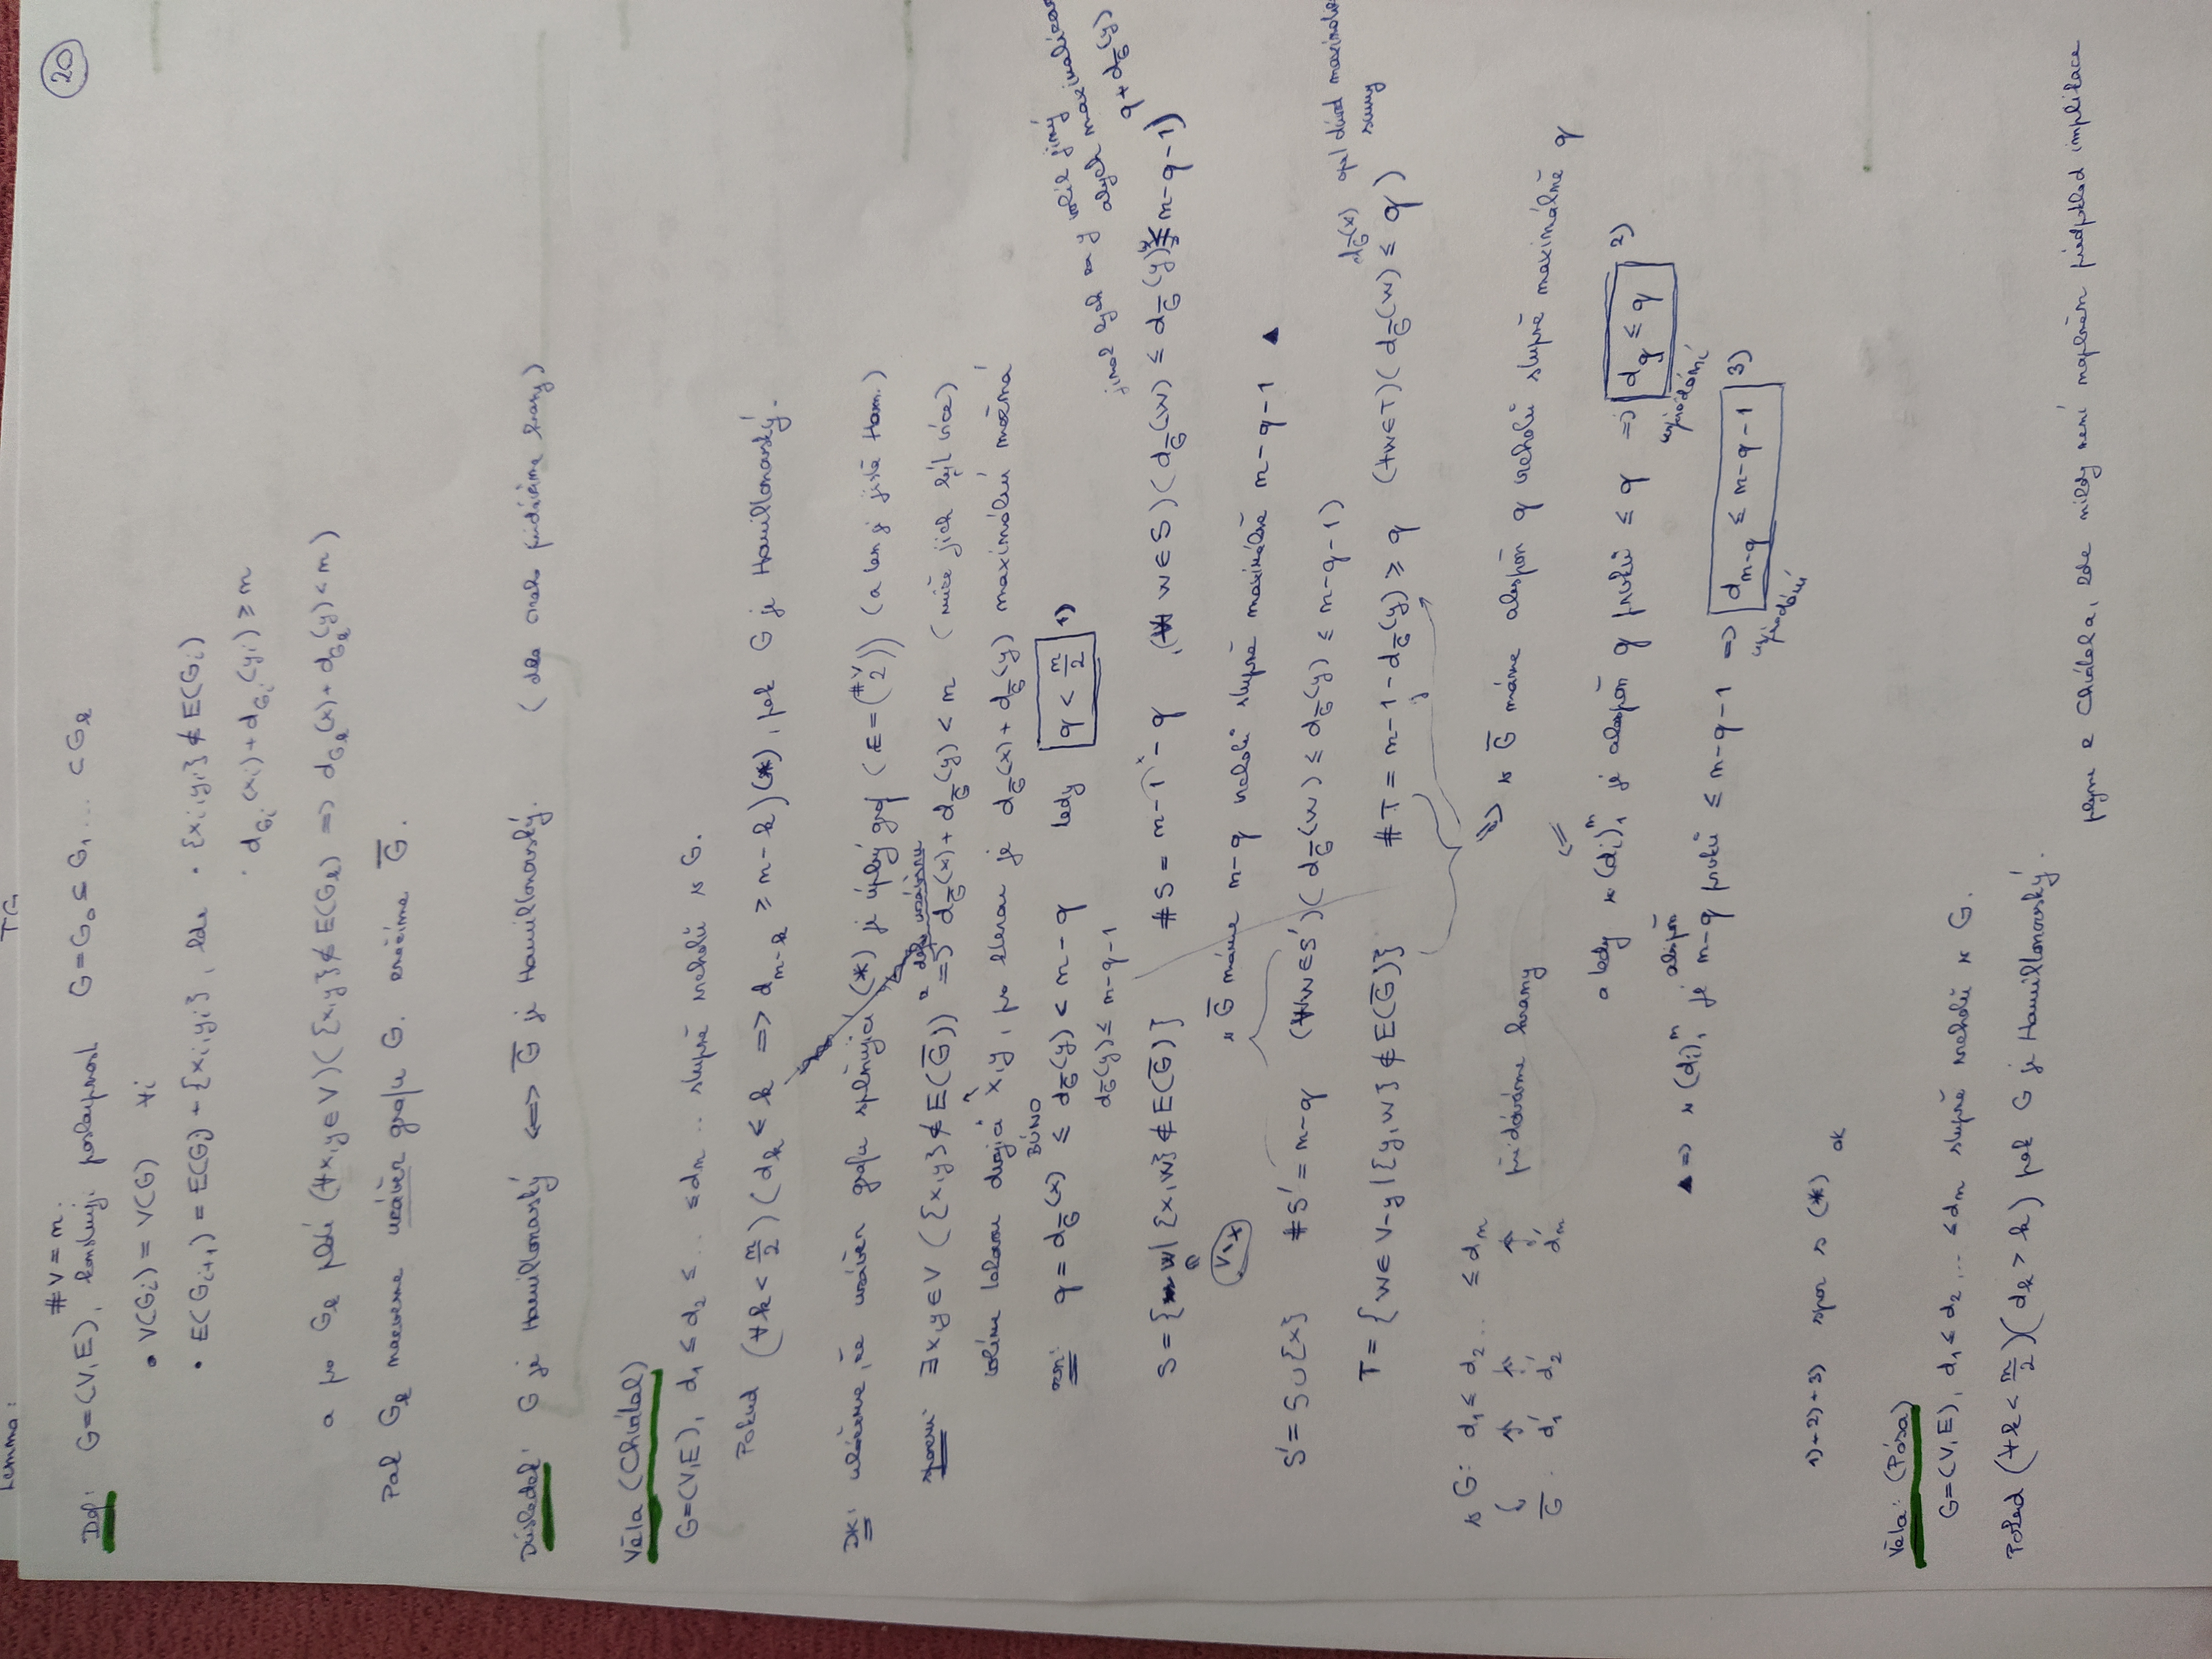 Lemma: TG
20
Def: G=(V,E), #V=n: konstruuji posloupnost G=G₀⊆G₁...⊂Gₖ
• V(Gᵢ)=V(G) ∀i
• E(Gᵢ₊₁)=E(Gᵢ)+{xᵢ,yᵢ}, kde • {xᵢ,yᵢ}∉E(Gᵢ)
• d_Gᵢ(xᵢ)+d_Gᵢ(yᵢ)≥n
a pro Gₖ platí (∀x,y∈V)({x,y}∉E(Gₖ) ⇒ d_Gₖ(x)+d_Gₖ(y)<n)
Pak Gₖ nazveme uzávěr grafu G. značíme G̅.
Důsledek: G je Hamiltonovský ⟺ G̅ je Hamiltonovský. (dle přidáváme hrany)
Věta (Chvátal)
G=(V,E), d₁≤d₂≤...≤dₙ.. stupně vrcholů v G.
Pokud (∀k<n/2)(dₖ≤k ⇒ dₙ₋ₖ≥n-k)(*), pak G je Hamiltonovský.
DK: ukážeme, že uzávěr grafu splňující (*) je úplný graf (E=(#V 2)) (a ten je jistě Ham.)
sporem: ∃x,y∈V({x,y}∉E(G̅)) a dle uzávěru ⇒ d_G̅(x)+d_G̅(y)<n (může jich být více)
volím takovou dvojici x,y, pro kterou je d_G̅(x)+d_G̅(y) maximální možná
ozn: q=d_G̅(x) ≤ d_G̅(y)<n-q tedy q<n/2 1)
BÚNO
d_G̅(y)≤n-q-1
jinak bych za y volil jiný
abych maximalizoval
q+d_G̅(y)
S={w|{x,w}∉E(G̅)} #S=n-1-q (∀w∈S)(d_G̅(w)≤d_G̅(y)≤n-q-1)
V\x
v G̅ máme n-q vrcholů stupně maximálně n-q-1 ▲
S'=S∪{x} #S'=n-q (∀w∈S')(d_G̅(w)≤d_G̅(y)≤n-q-1)
d_G̅(x) opět důvod maximalizace
sumy
T={w∈V-y|{y,w}∉E(G̅)} #T=n-1-d_G̅(y)≥q (∀w∈T)(d_G̅(w)≤q)
⇒ v G̅ máme alespoň q vrcholů stupně maximálně q
v G: d₁≤d₂... ≤dₙ přidáváme hrany ⇐
G̅: d₁' d₂' dₙ'
a tedy v (dᵢ)₁ⁿ je alespoň q prvků ≤q ⇒ d_q≤q 2)
uspořádání
▲⇒ v (dᵢ)₁ⁿ je alespoň n-q prvků ≤n-q-1 ⇒ dₙ₋q≤n-q-1 3)
uspořádání
1)+2)+3) spor s (*) ok
Věta: (Pósa)
G=(V,E), d₁≤d₂...≤dₙ stupně vrcholů v G.
Pokud (∀k<n/2)(dₖ>k) pak G je Hamiltonovský.
plyne z Chvátala, kde nikdy není naplněn předpoklad implikace